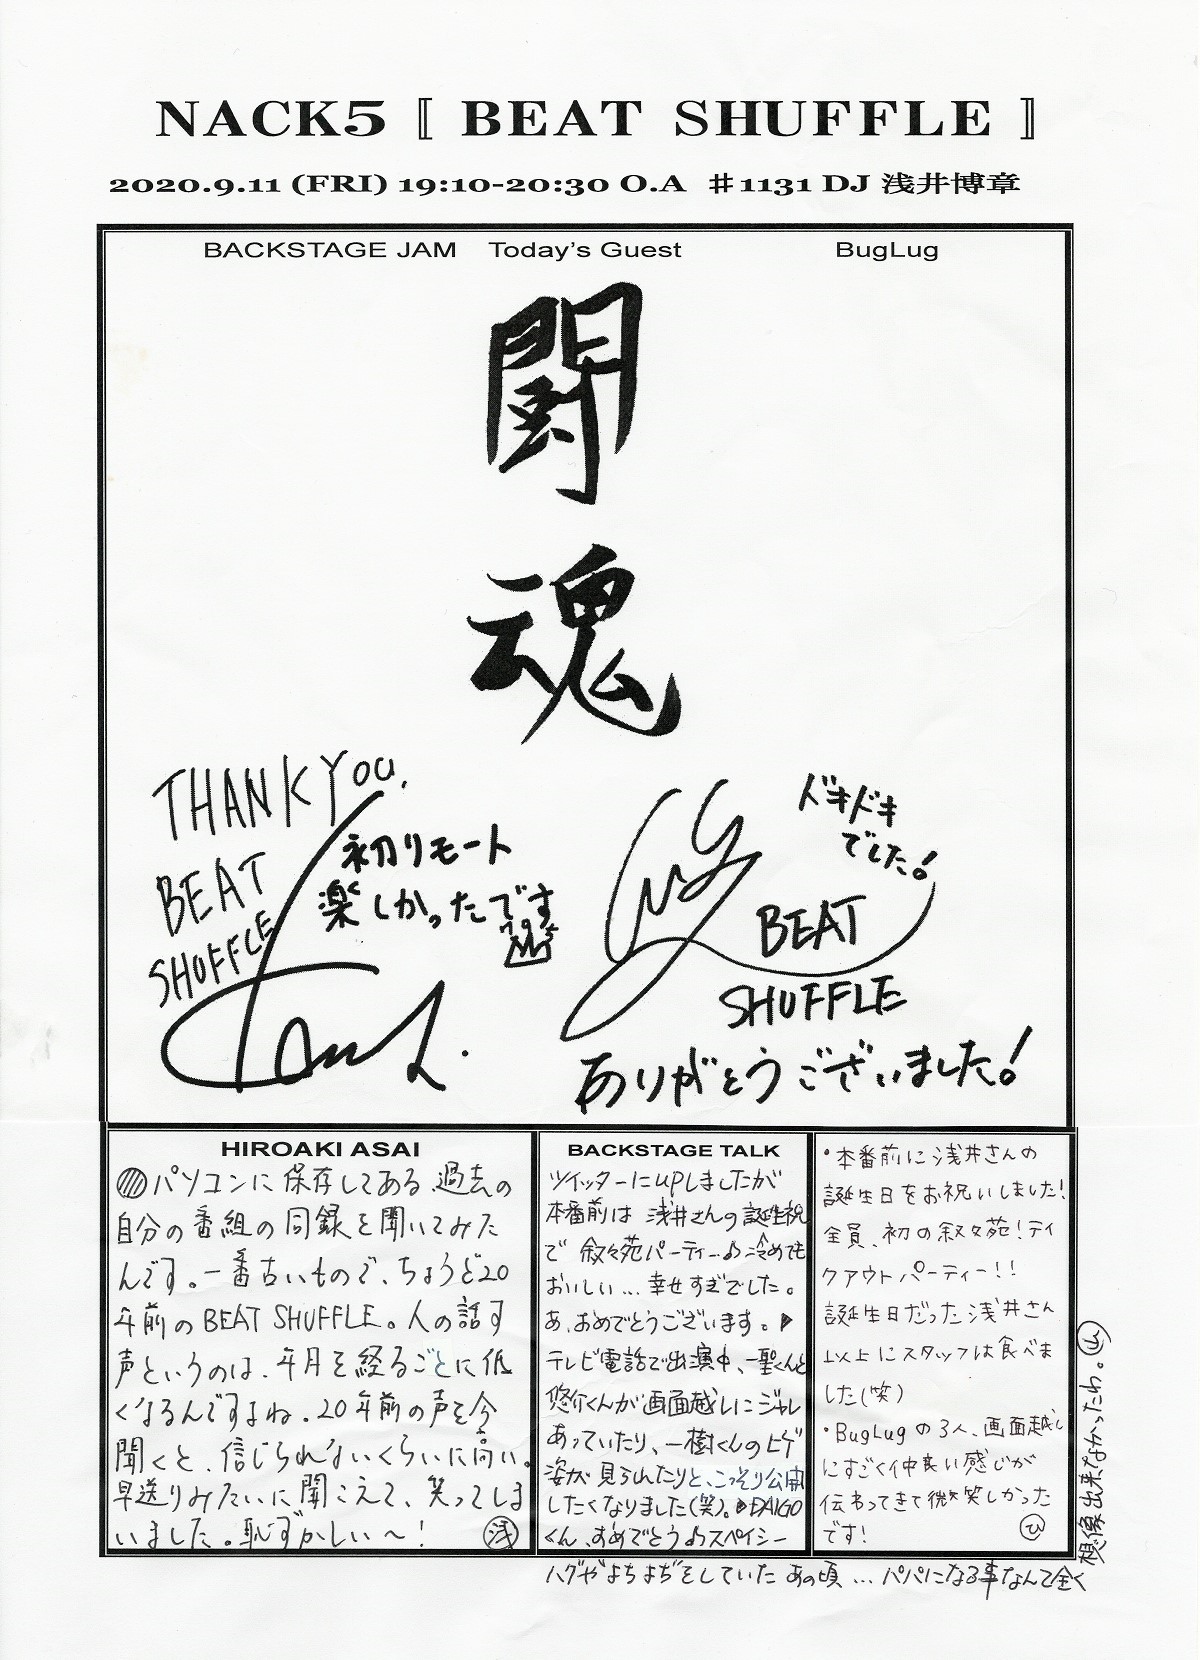 NACK5 〚 BEAT SHUFFLE 〛
2020.9.11 (FRI) 19:10-20:30 O.A ♯1131 DJ 浅井博章
BACKSTAGE JAM Today's Guest BugLug
闘
魂
THANK YOU.
BEAT
SHUFFLE
初リモート
楽しかったです
ドキドキ
でした!
BEAT
SHUFFLE
ありがとうございました!
HIROAKI ASAI
パソコンに保存してある、過去の
自分の番組の同録を聞いてみた
んです。一番古いもので、ちょうど20
年前のBEAT SHUFFLE。人の話す
声というのは、年月を経るごとに低
くなるんですよね。20年前の声を今
聞くと、信じられないくらいに高い。
早送りみたいに聞こえて、笑ってしま
いました。恥ずかしい〜! 浅
BACKSTAGE TALK
ツイッターにupしましたが
本番前は浅井さんの誕生祝
で叙々苑パーティー♪冷めても
おいしい…幸せすぎでした。
あ、おめでとうございます。▶
テレビ電話で出演中、一聖くんと
悠介くんが画面越しにジャレ
あっていたり、一樹くんのヒゲ
姿が見られたりと、こっそり公開
したくなりました(笑)。▶DAIGO
くん、おめでとう♪スペイシー
ハグやよちよぢをしていたあの頃…パパになる事なんて全く
想像出来なかったわ。ひ
・本番前に浅井さんの
誕生日をお祝いしました!
全員、初の叙々苑!テイ
クアウトパーティー!!
誕生日だった浅井さん
以上にスタッフは食べま
した(笑)
・BugLugの3人、画面越し
にすごく仲良い感じが
伝わってきて微笑しかった
です! ひ